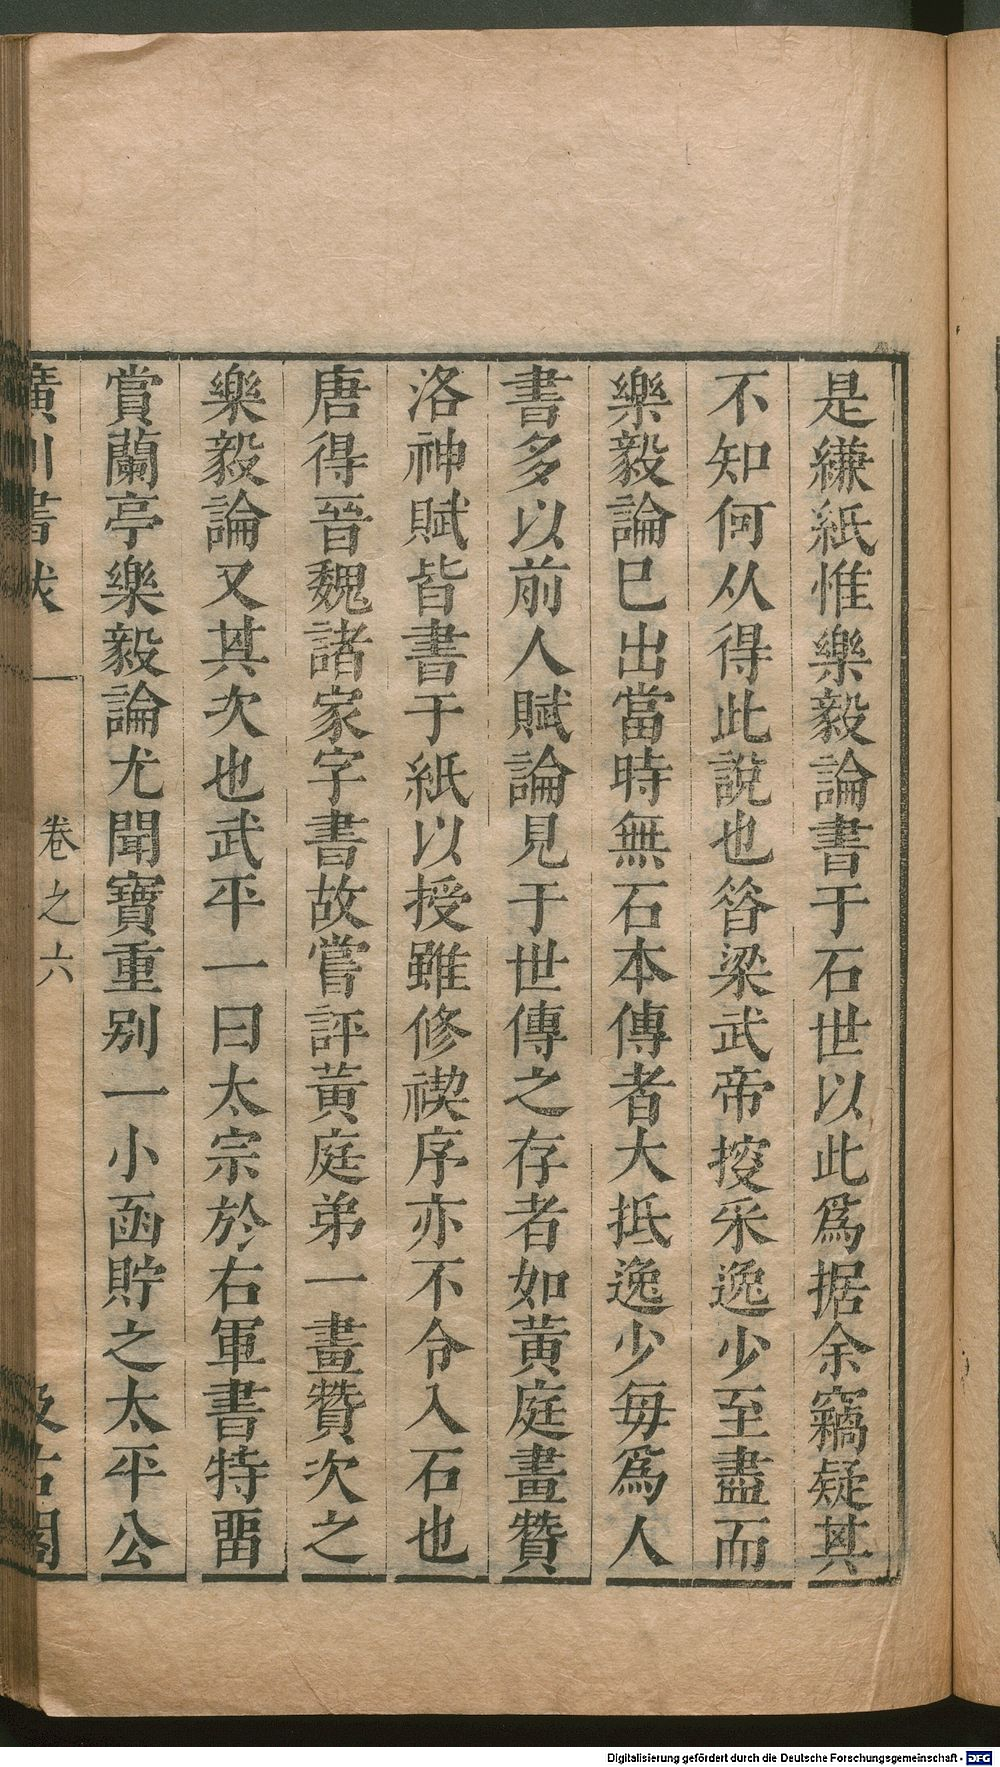 是縑紙惟樂毅論書于石世以此爲据余竊疑其
不知何从得此說也昝梁武帝㨙采逸少至盡而
樂毅論巳出當時無石本傳者大抵逸少每爲人
書多以前人賦論見于世傳之存者如黃庭畫贊
洛神賦皆書于紙以授雖修禊序亦不令入石也
唐得晉魏諸家字書故嘗評黃庭弟一畫贊次之
樂毅論又其次也武平一曰太宗於右軍書特畱
賞蘭亭樂毅論尤聞寶重别一小函貯之太平公
廣川書跋
卷之六
汲古閣
Digitalisierung gefördert durch die Deutsche Forschungsgemeinschaft - DFG